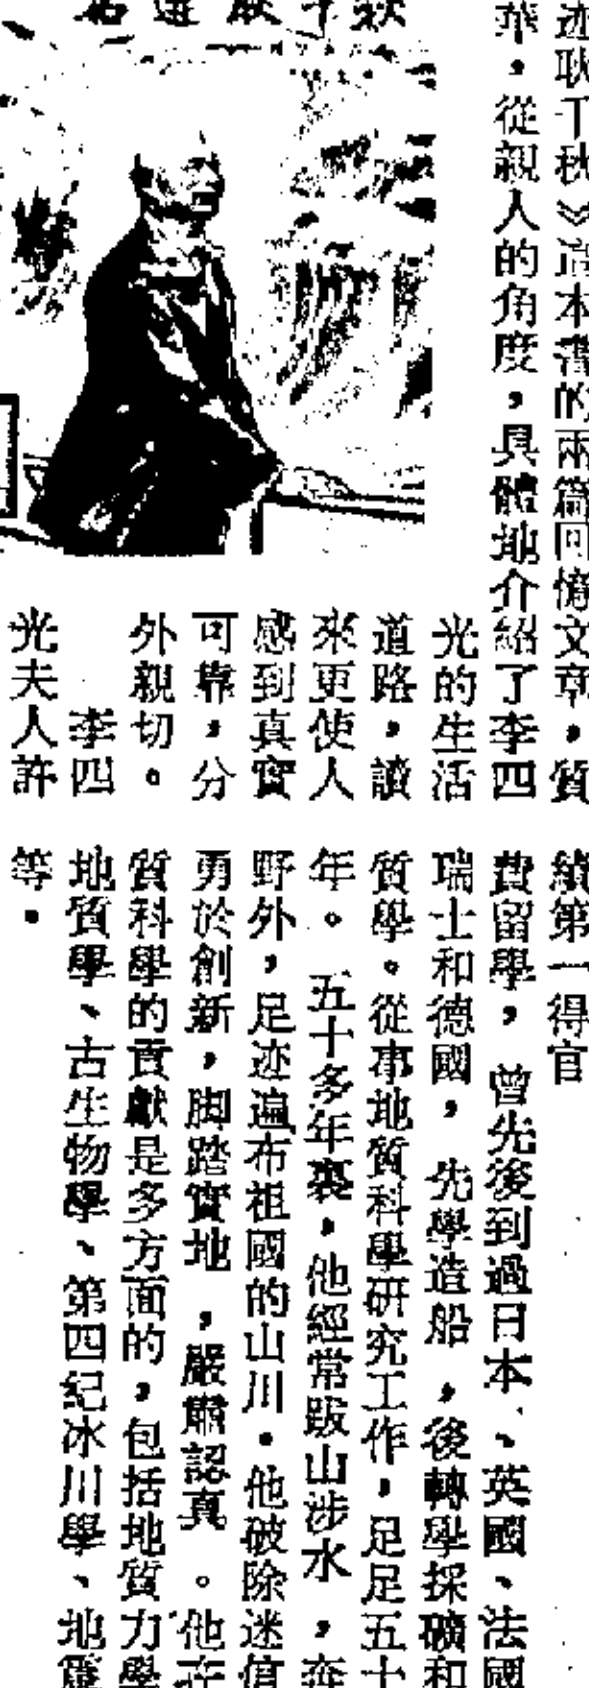 迹耿千秋》這本書的兩篇回憶文章，質
華，從親人的角度，具體地介紹了李四
光的生活
道路，讀
來更使人
感到真實
可靠，分
外親切。
李四
光夫人許
績第一得官
費留學，曾先後到過日本、英國、法國
瑞士和德國，先學造船，後轉學採礦和
質學。從事地質科學研究工作，足足五十
年。五十多年裏，他經常跋山涉水，奔
野外，足迹遍布祖國的山川。他破除迷信
勇於創新，脚踏實地，嚴肅認真。他在
質科學的貢獻是多方面的，包括地質力學
地質學、古生物學、第四紀冰川學、地震
等。